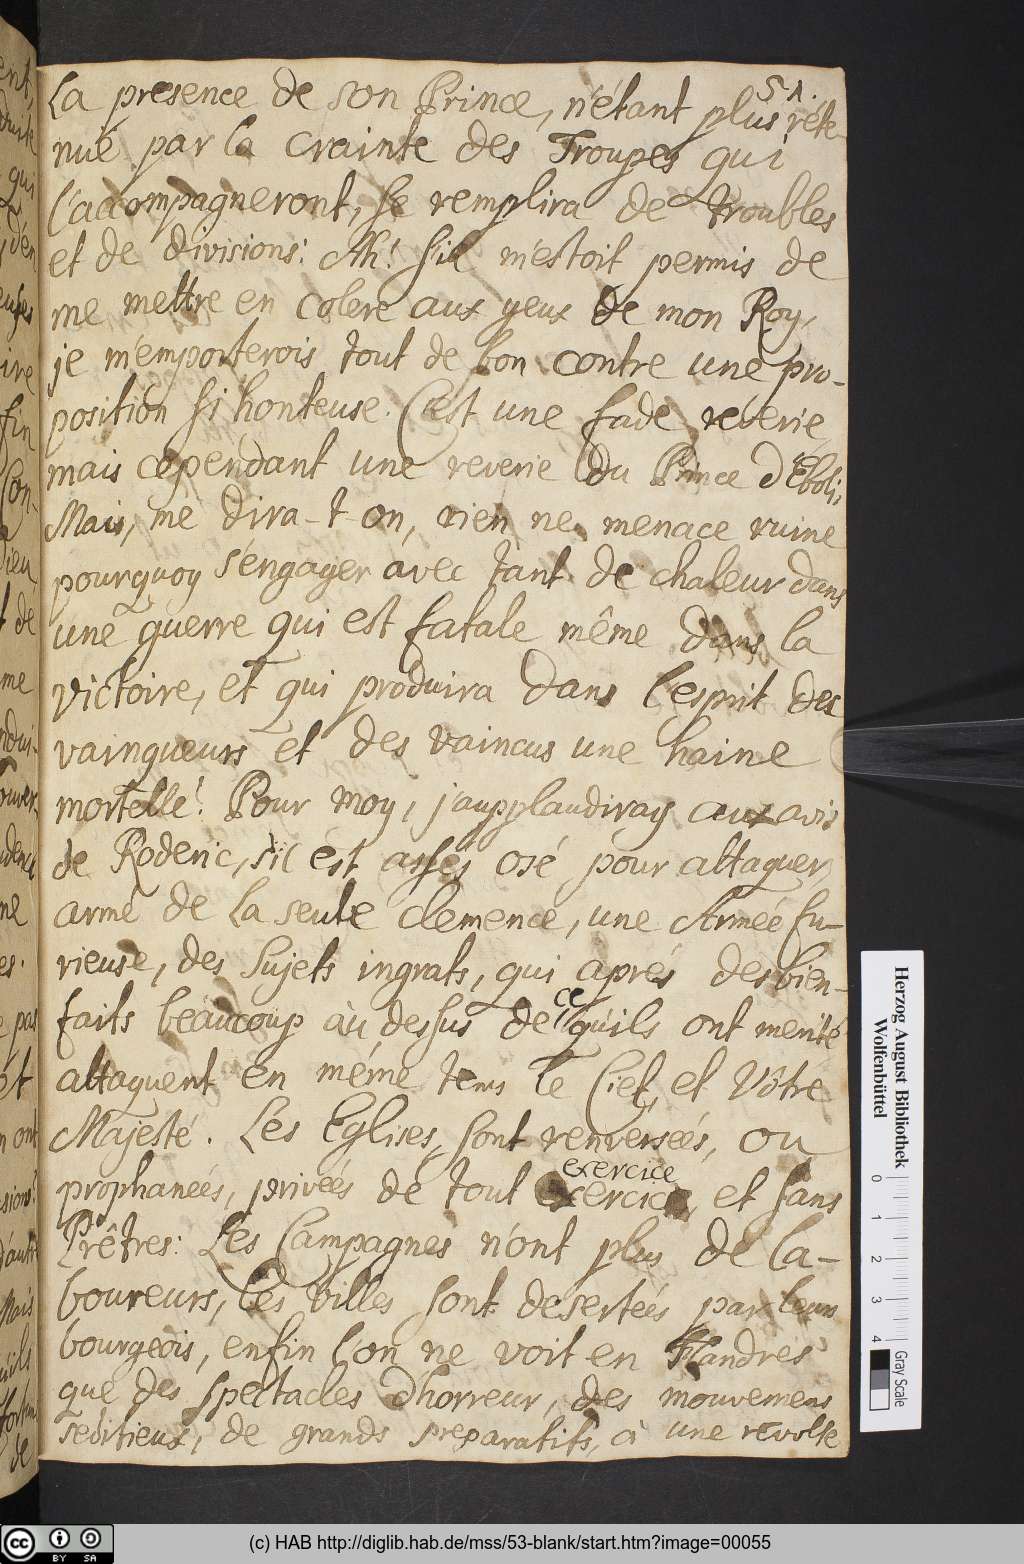 51.
La presence de son Prince, n'étant plus réte-
nuë par la crainte des Troupes qui
l'accompagneront, se remplira de troubles
et de divisions: Ah! s'il m'estoit permis de
me mettre en colere aux yeux de mon Roy,
je m'emporterois tout de bon contre une pro-
position si honteuse. C'est une fade réverie,
mais cependant une reverie du Prince d'Eboli,
Mais, me dira-t-on, rien ne menace ruine
pourquoy s'engager avec tant de chaleur dans
une guerre qui est fatale même dans la
victoire, et qui produira dans l'esprit des
vainqueurs et des vaincus une haine
mortelle! Pour moy, j'aupplaudiray aux avis
de Roderic, s'il est assés osé pour attaquer,
armé de la seule clemence, une Armée fu-
rieuse, des Sujets ingrats, qui aprés des bien-
faits beaucoup àu dessus de ce qu'ils ont merité
attaquent en méme tems le Ciel, et Vôtre
Majesté. Les Eglises, sont renversées, ou
prophanées, privées de tout exercice
exercice, et sans
Prêtres: Les Campagnes n'ont plus de la-
boureurs, les villes sont desertées par leurs
bourgeois, enfin l'on ne voit en Flandres
que des spectacles d'horreur, des mouvemens
seditieux, de grands preparatifs, à une revolte
Herzog August Bibliothek
Wolfenbüttel
0 1 2 3 4
Gray Scale
cc BY SA
(c) HAB http://diglib.hab.de/mss/53-blank/start.htm?image=00055